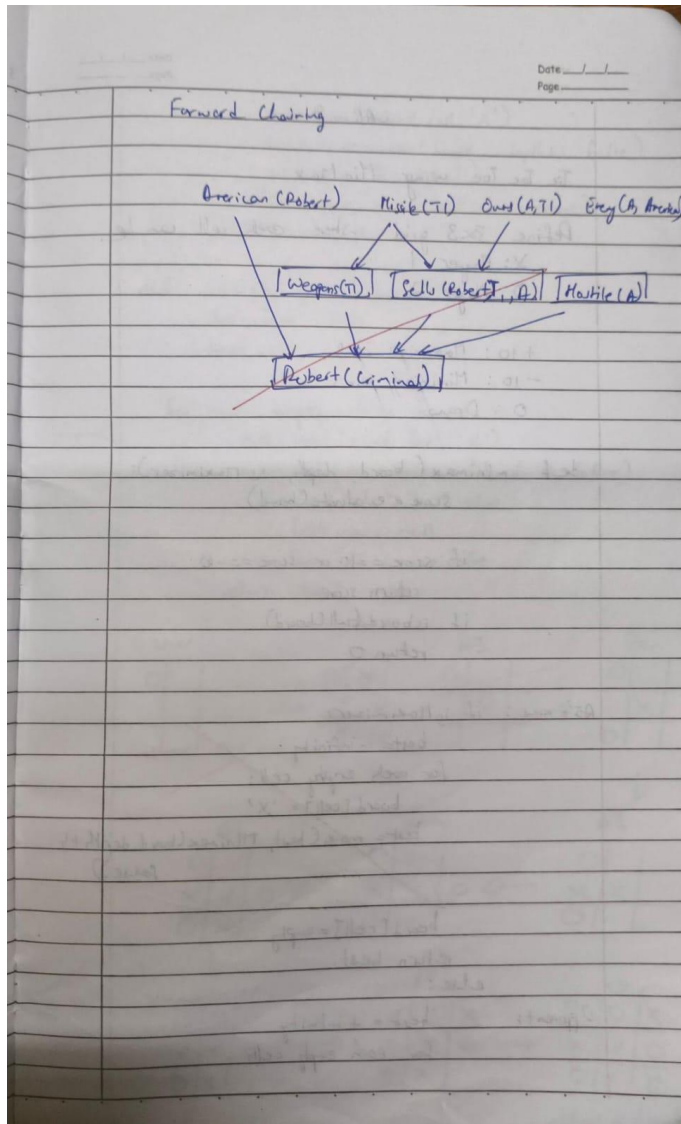 Date __/__/__
Page
Forward Chaining
American (Robert) Missile (T1) Owns (A, T1) Enemy (A, America)
Weapons (T1) Sells (Robert, T1, A) Hostile (A)
Robert (Criminal)